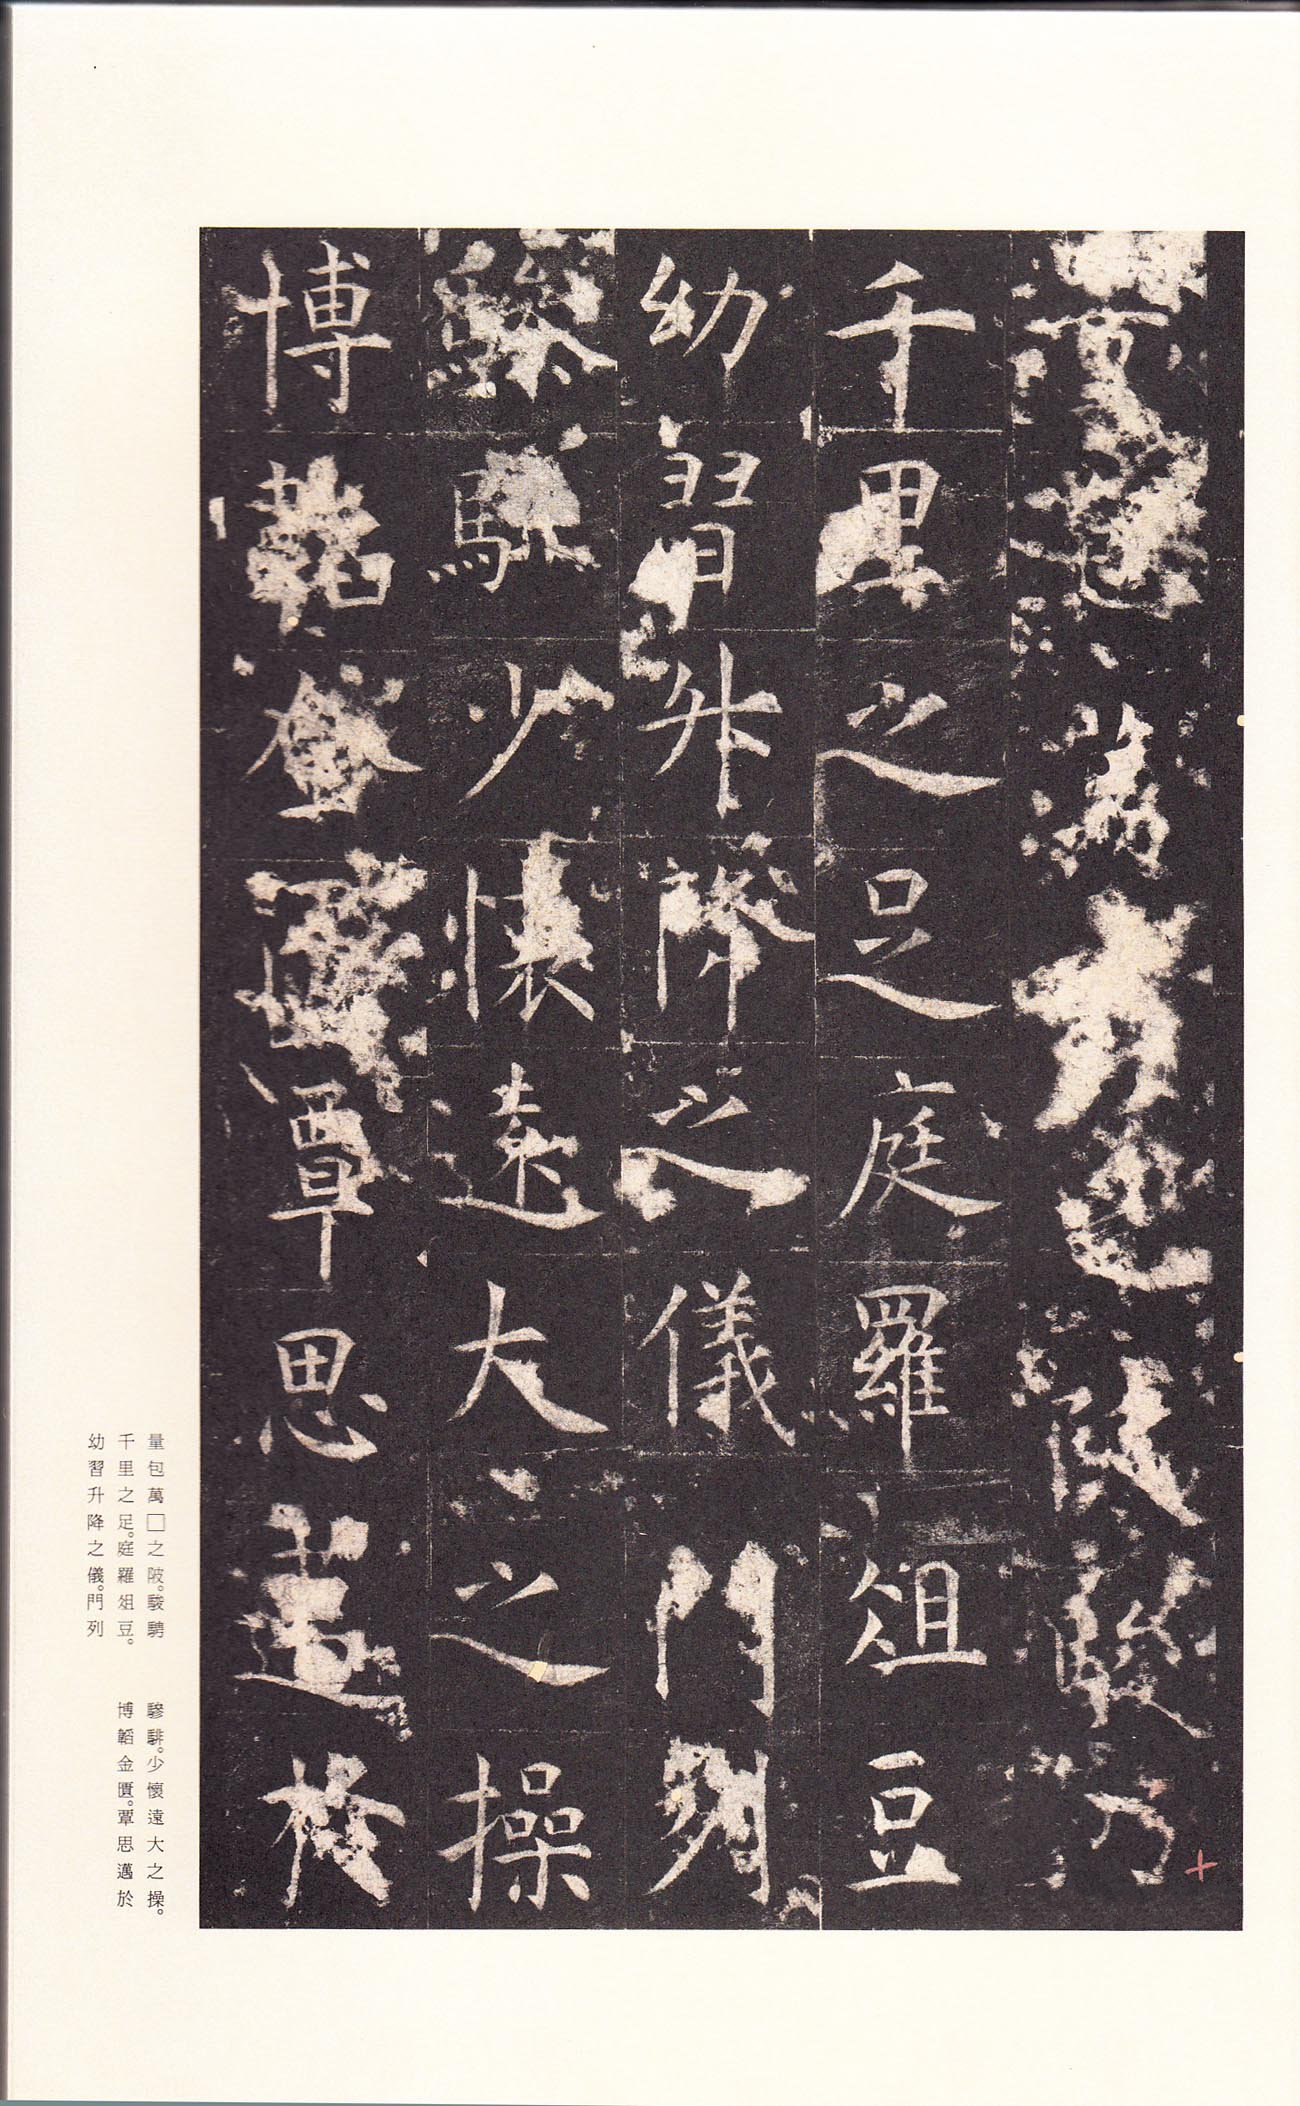 量包萬□之陂駿騁
千里之足庭羅俎豆
幼習升降之儀門列
驂騑少懷遠大之操
博韜金匱覃思邁於
量包萬□之陂。駿騁
千里之足。庭羅俎豆。
幼習升降之儀。門列
驂騑。少懷遠大之操。
博韜金匱。覃思邁於